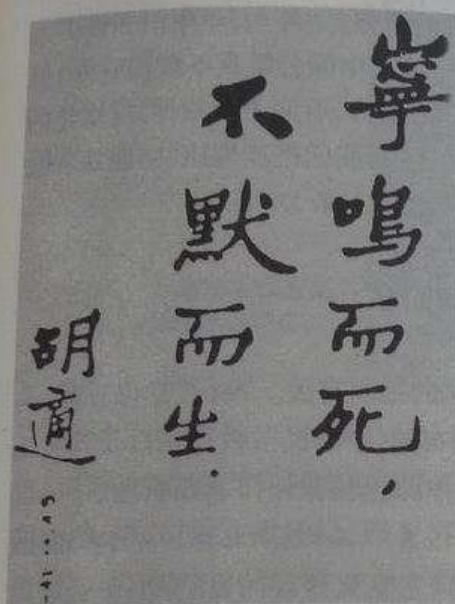 寧鳴而死，
不默而生．
胡適